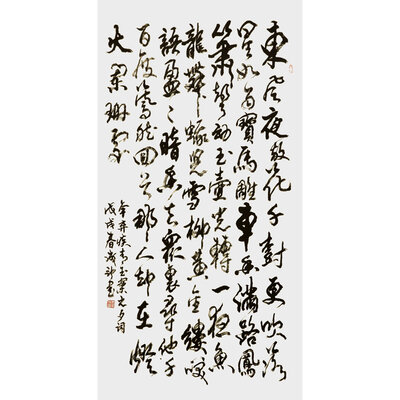 東風夜放花千樹更吹落
星如雨寶馬雕車香滿路鳳
簫聲動玉壺光轉一夜魚
龍舞蛾兒雪柳黃金縷笑
語盈々暗香去衆裏尋他千
百度驀然回首那人却在燈
火闌珊處
辛弃疾青玉案元夕词
戊戌春書